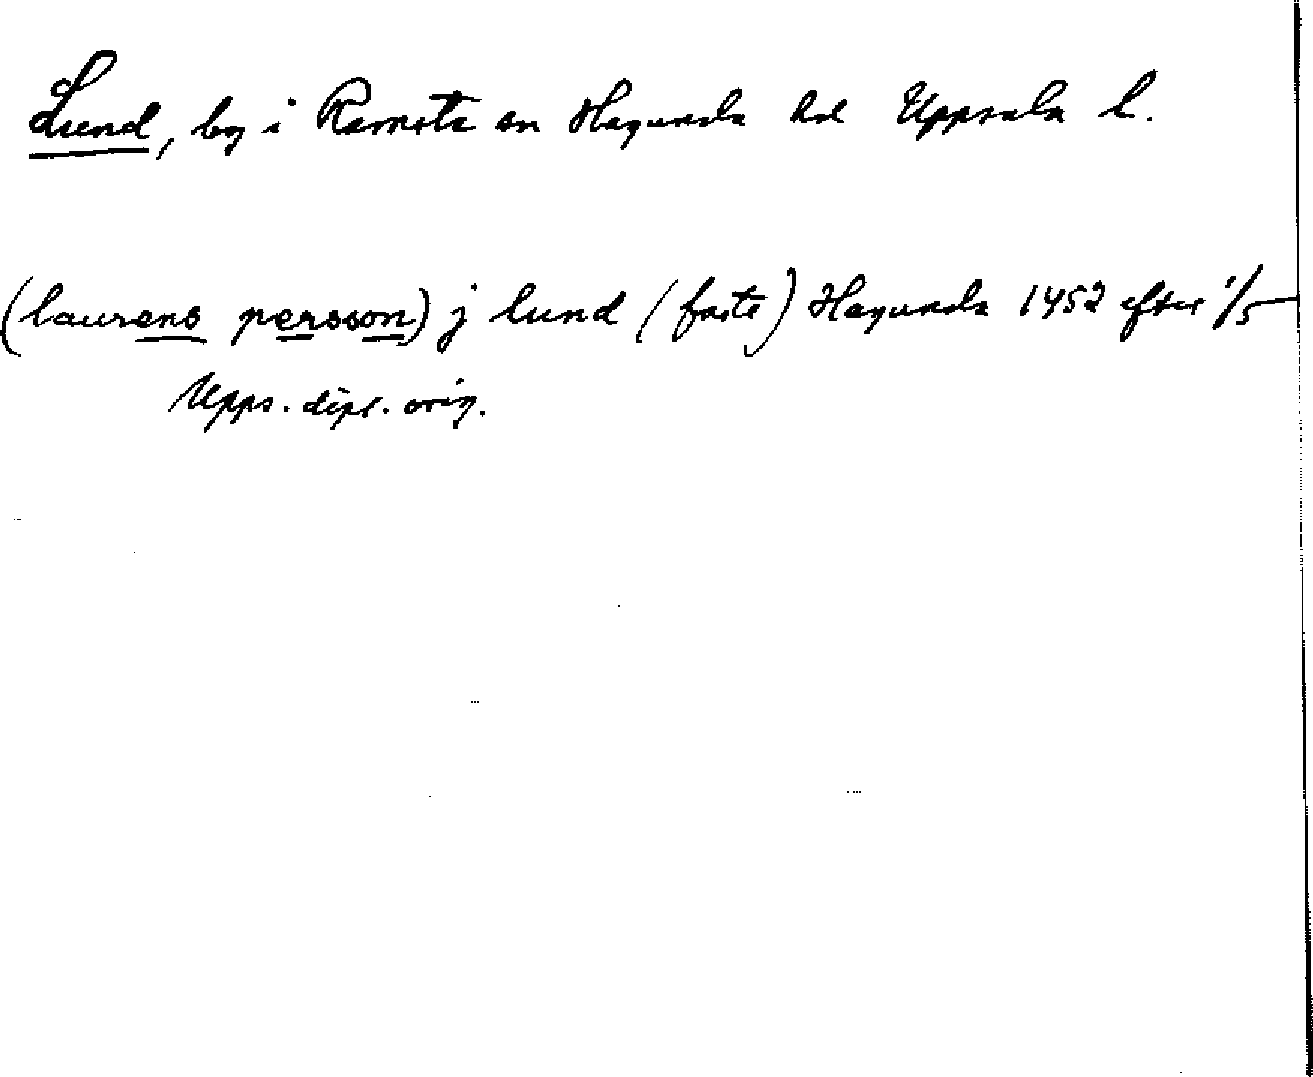 Lund, by i Ramsta sn Hagunda hd Uppsala l.
(laurens persson) j lund (faste) Hagunda 1452 efter 1/5
Upps. dipl. orig.